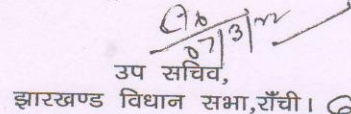 07/3/22
उप सचिव,
झारखण्ड विधान सभा,राँची।